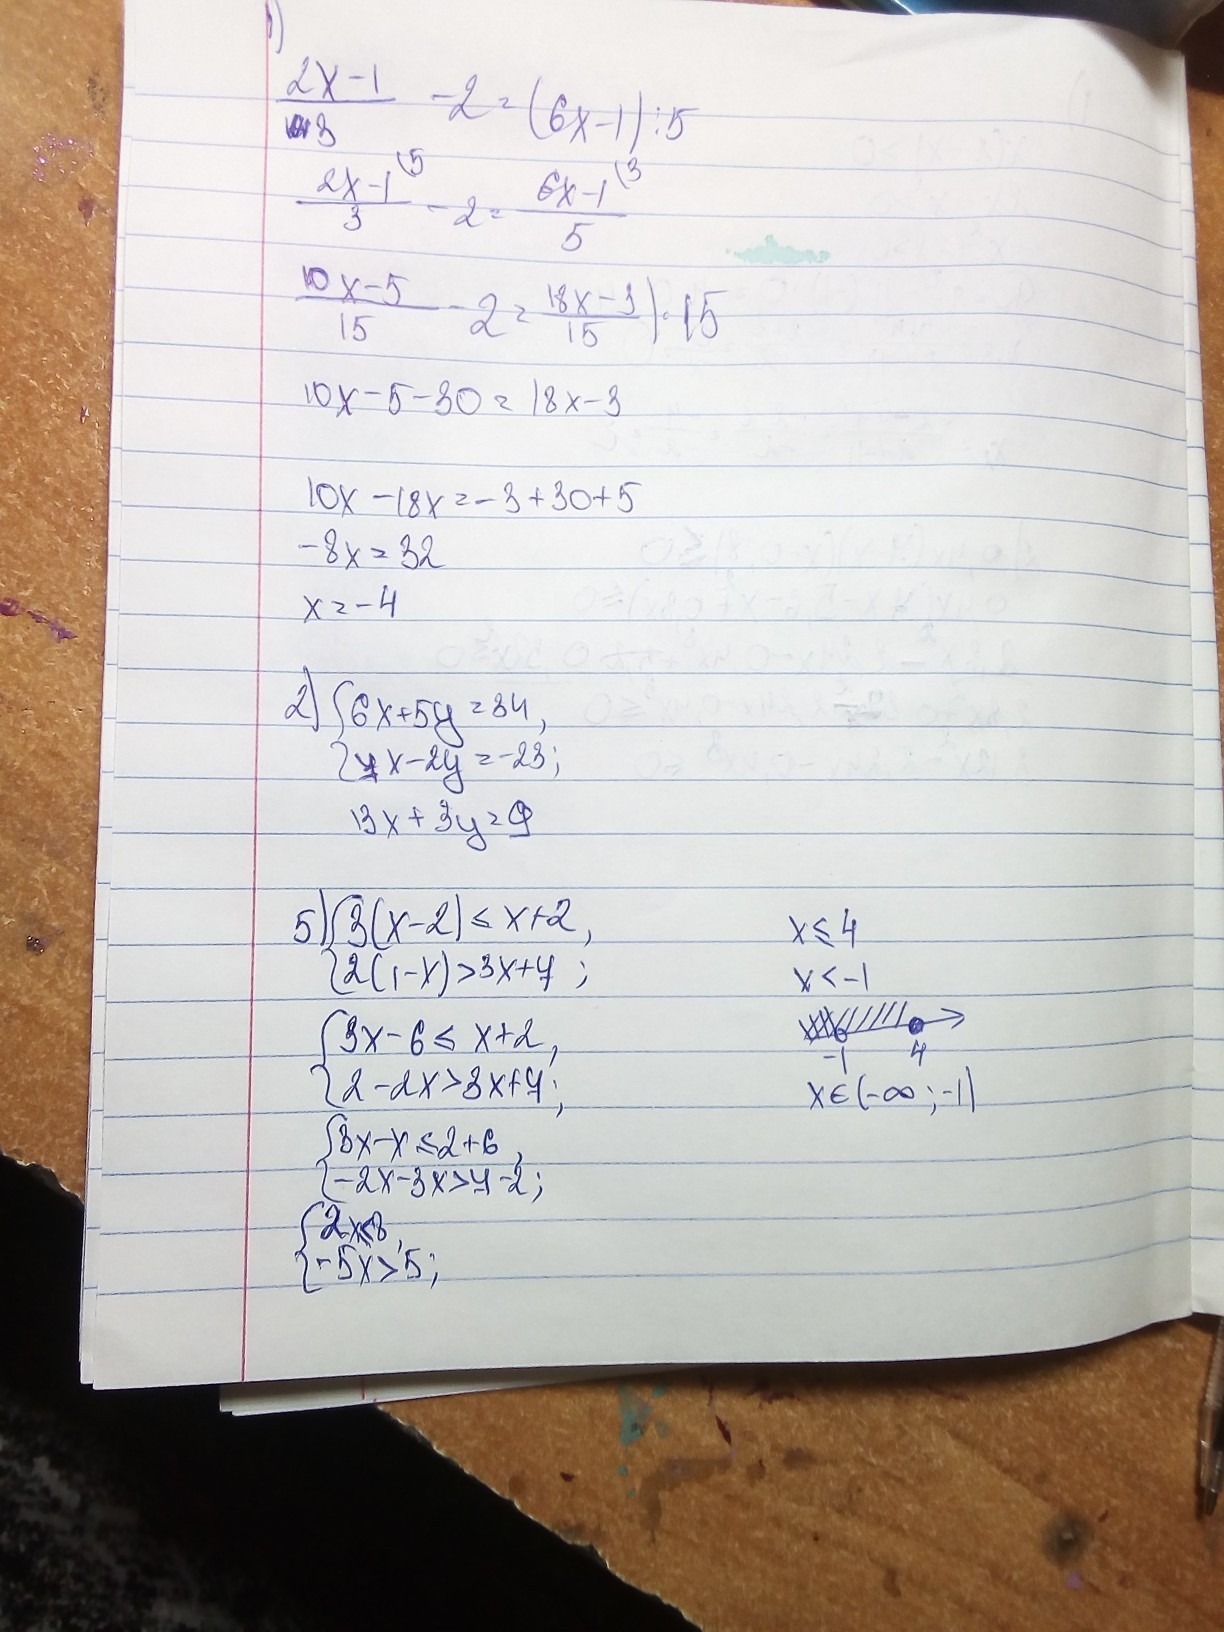 1)
2x-1/3 -2=(6x-1):5
2x-1\5/3 -2= 6x-1\3/5
10x-5/15 -2= 18x-3/15 )·15
10x-5-30=18x-3
10x-18x=-3+30+5
-8x=32
x=-4
2) {6x+5y=34,
7x-2y=-23;
13x+3y=9
5) {3(x-2)≤x+2,
2(1-x)>3x+7;
{3x-6≤x+2,
2-2x>3x+7;
{3x-x≤2+6,
-2x-3x>7-2;
{2x≤8,
-5x>5;
x≤4
x<-1
-1 4
x∈(-∞;-1)